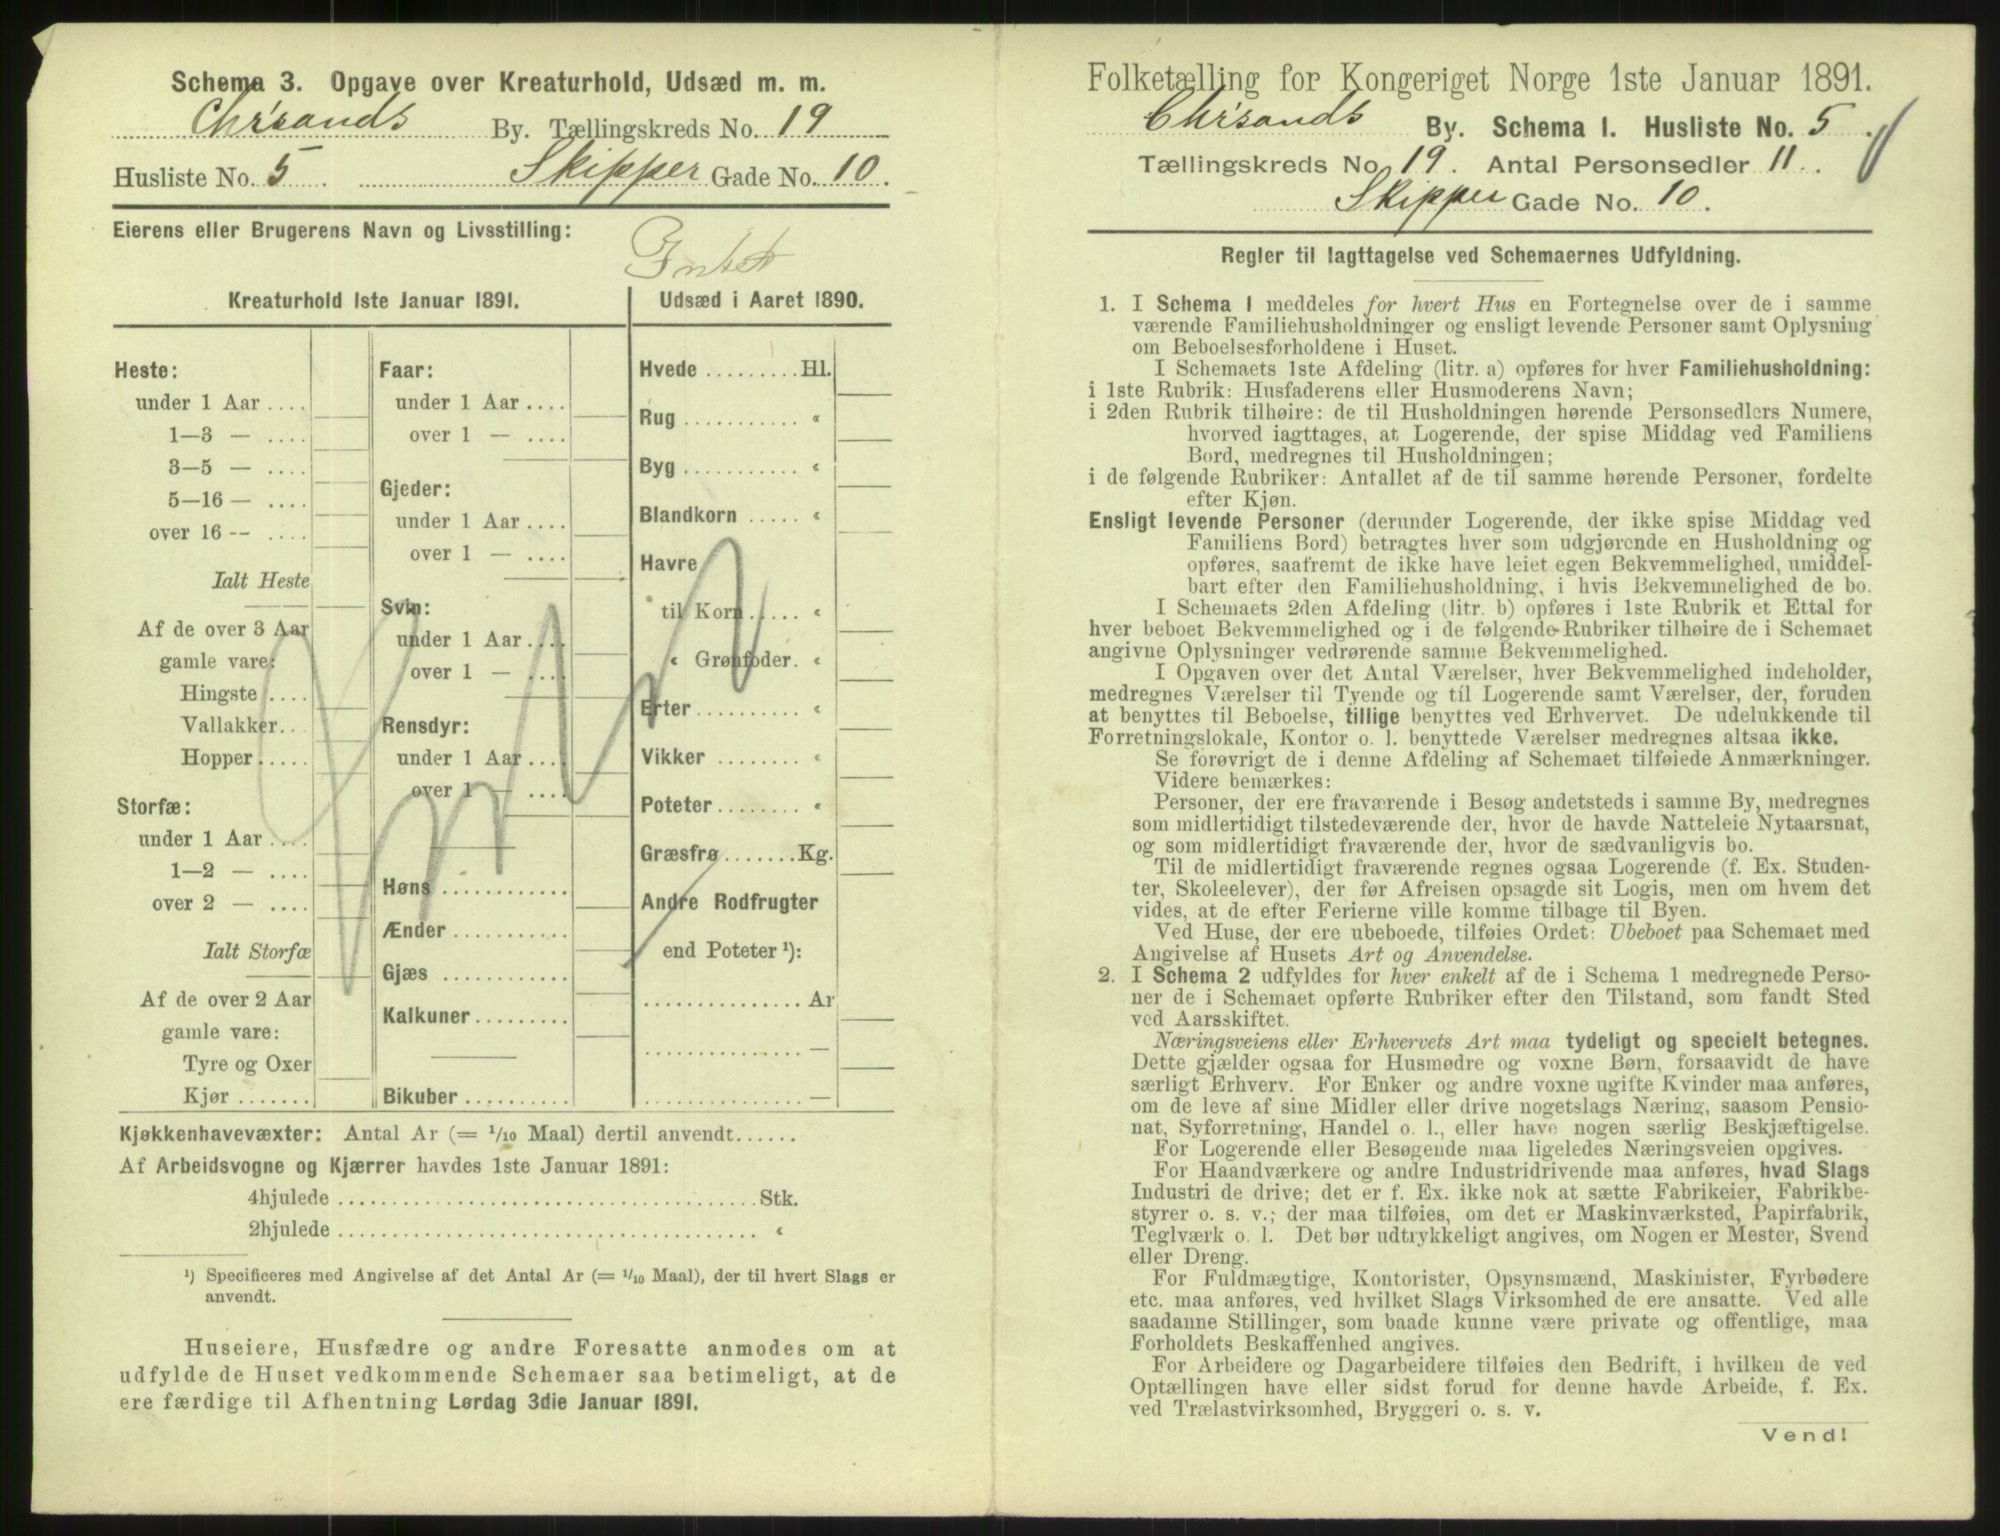 Schema 3. Opgave over Kreaturhold, Udsæd m. m.
Chr'sands By. Tællingskreds No. 19
Husliste No. 5 Skipper Gade No. 10.
Eierens eller Brugerens Navn og Livsstilling:
Intet
Kreaturhold 1ste Januar 1891.
Heste:
under 1 Aar ....
1—3 — ....
3—5 — ....
5—16 — ....
over 16 -- ....
Ialt Heste
Af de over 3 Aar
gamle vare:
Hingste ....
Vallakker..
Hopper.....
Storfæ:
under 1 Aar ....
1—2 — ....
over 2 — ....
Ialt Storfæ
Af de over 2 Aar
gamle vare:
Tyre og Oxer
Kjør .......
Faar:
under 1 Aar ....
over 1 — ....
Gjeder:
under 1 Aar ....
over 1 — ....
Svin:
under 1 Aar ....
over 1 — ....
Rensdyr:
under 1 Aar ....
over 1 — ....
Høns ............
Ænder ...........
Gjæs ............
Kalkuner.........
Bikuber ..........
Udsæd i Aaret 1890.
Hvede .........Hl.
Rug ........... "
Byg ........... "
Blandkorn ..... "
Havre
til Korn ..... "
" Grønfoder. "
Erter .......... "
Vikker ........ "
Poteter ........ "
Græsfrø .......Kg.
Andre Rodfrugter
end Poteter ¹):
............... Ar
............... —
............... —
Kjøkkenhavevæxter: Antal Ar (= 1/10 Maal) dertil anvendt......
Af Arbeidsvogne og Kjærrer havdes 1ste Januar 1891:
4hjulede ...................................... Stk.
2hjulede ...................................... "
¹) Specificeres med Angivelse af det Antal Ar (= 1/10 Maal), der til hvert Slags er
anvendt.
Huseiere, Husfædre og andre Foresatte anmodes om at
udfylde de Huset vedkommende Schemaer saa betimeligt, at de
ere færdige til Afhentning Lørdag 3die Januar 1891.
Folketælling for Kongeriget Norge 1ste Januar 1891.
Chr'sands By. Schema I. Husliste No. 5.
Tællingskreds No. 19. Antal Personsedler 11.
Skipper Gade No. 10.
Regler til Iagttagelse ved Schemaernes Udfyldning.
1. I Schema I meddeles for hvert Hus en Fortegnelse over de i samme
værende Familiehusholdninger og ensligt levende Personer samt Oplysning
om Beboelsesforholdene i Huset.
I Schemaets 1ste Afdeling (litr. a) opføres for hver Familiehusholdning:
i 1ste Rubrik: Husfaderens eller Husmoderens Navn;
i 2den Rubrik tilhøire: de til Husholdningen hørende Personsedlers Numere,
hvorved iagttages, at Logerende, der spise Middag ved Familiens
Bord, medregnes til Husholdningen;
i de følgende Rubriker: Antallet af de til samme hørende Personer, fordelte
efter Kjøn.
Ensligt levende Personer (derunder Logerende, der ikke spise Middag ved
Familiens Bord) betragtes hver som udgjørende en Husholdning og
opføres, saafremt de ikke have leiet egen Bekvemmelighed, umiddel-
bart efter den Familiehusholdning, i hvis Bekvemmelighed de bo.
I Schemaets 2den Afdeling (litr. b) opføres i 1ste Rubrik et Ettal for
hver beboet Bekvemmelighed og i de følgende Rubriker tilhøire de i Schemaet
angivne Oplysninger vedrørende samme Bekvemmelighed.
I Opgaven over det Antal Værelser, hver Bekvemmelighed indeholder,
medregnes Værelser til Tyende og til Logerende samt Værelser, der, foruden
at benyttes til Beboelse, tillige benyttes ved Erhvervet. De udelukkende til
Forretningslokale, Kontor o. l. benyttede Værelser medregnes altsaa ikke.
Se forøvrigt de i denne Afdeling af Schemaet tilføiede Anmærkninger.
Videre bemærkes:
Personer, der ere fraværende i Besøg andetsteds i samme By, medregnes
som midlertidigt tilstedeværende der, hvor de havde Natteleie Nytaarsnat,
og som midlertidigt fraværende der, hvor de sædvanligvis bo.
Til de midlertidigt fraværende regnes ogsaa Logerende (f. Ex. Studen-
ter, Skoleelever), der før Afreisen opsagde sit Logis, men om hvem det
vides, at de efter Ferierne ville komme tilbage til Byen.
Ved Huse, der ere ubeboede, tilføies Ordet: Ubeboet paa Schemaet med
Angivelse af Husets Art og Anvendelse.
2. I Schema 2 udfyldes for hver enkelt af de i Schema 1 medregnede Perso-
ner de i Schemaet opførte Rubriker efter den Tilstand, som fandt Sted
ved Aarsskiftet.
Næringsveiens eller Erhvervets Art maa tydeligt og specielt betegnes.
Dette gjælder ogsaa for Husmødre og voxne Børn, forsaavidt de have
særligt Erhverv. For Enker og andre voxne ugifte Kvinder maa anføres,
om de leve af sine Midler eller drive nogetslags Næring, saasom Pensio-
nat, Syforretning, Handel o. l., eller have nogen særlig Beskjæftigelse.
For Logerende eller Besøgende maa ligeledes Næringsveien opgives.
For Haandværkere og andre Industridrivende maa anføres, hvad Slags
Industri de drive; det er f. Ex. ikke nok at sætte Fabrikeier, Fabrikbe-
styrer o. s. v.; der maa tilføies, om det er Maskinværksted, Papirfabrik,
Teglværk o. l. Det bør udtrykkeligt angives, om Nogen er Mester, Svend
eller Dreng.
For Fuldmægtige, Kontorister, Opsynsmænd, Maskinister, Fyrbødere
etc. maa anføres, ved hvilket Slags Virksomhed de ere ansatte. Ved alle
saadanne Stillinger, som baade kunne være private og offentlige, maa
Forholdets Beskaffenhed angives.
For Arbeidere og Dagarbeidere tilføies den Bedrift, i hvilken de ved
Optællingen have eller sidst forud for denne havde Arbeide, f. Ex.
ved Trælastvirksomhed, Bryggeri o. s. v.
Vend!